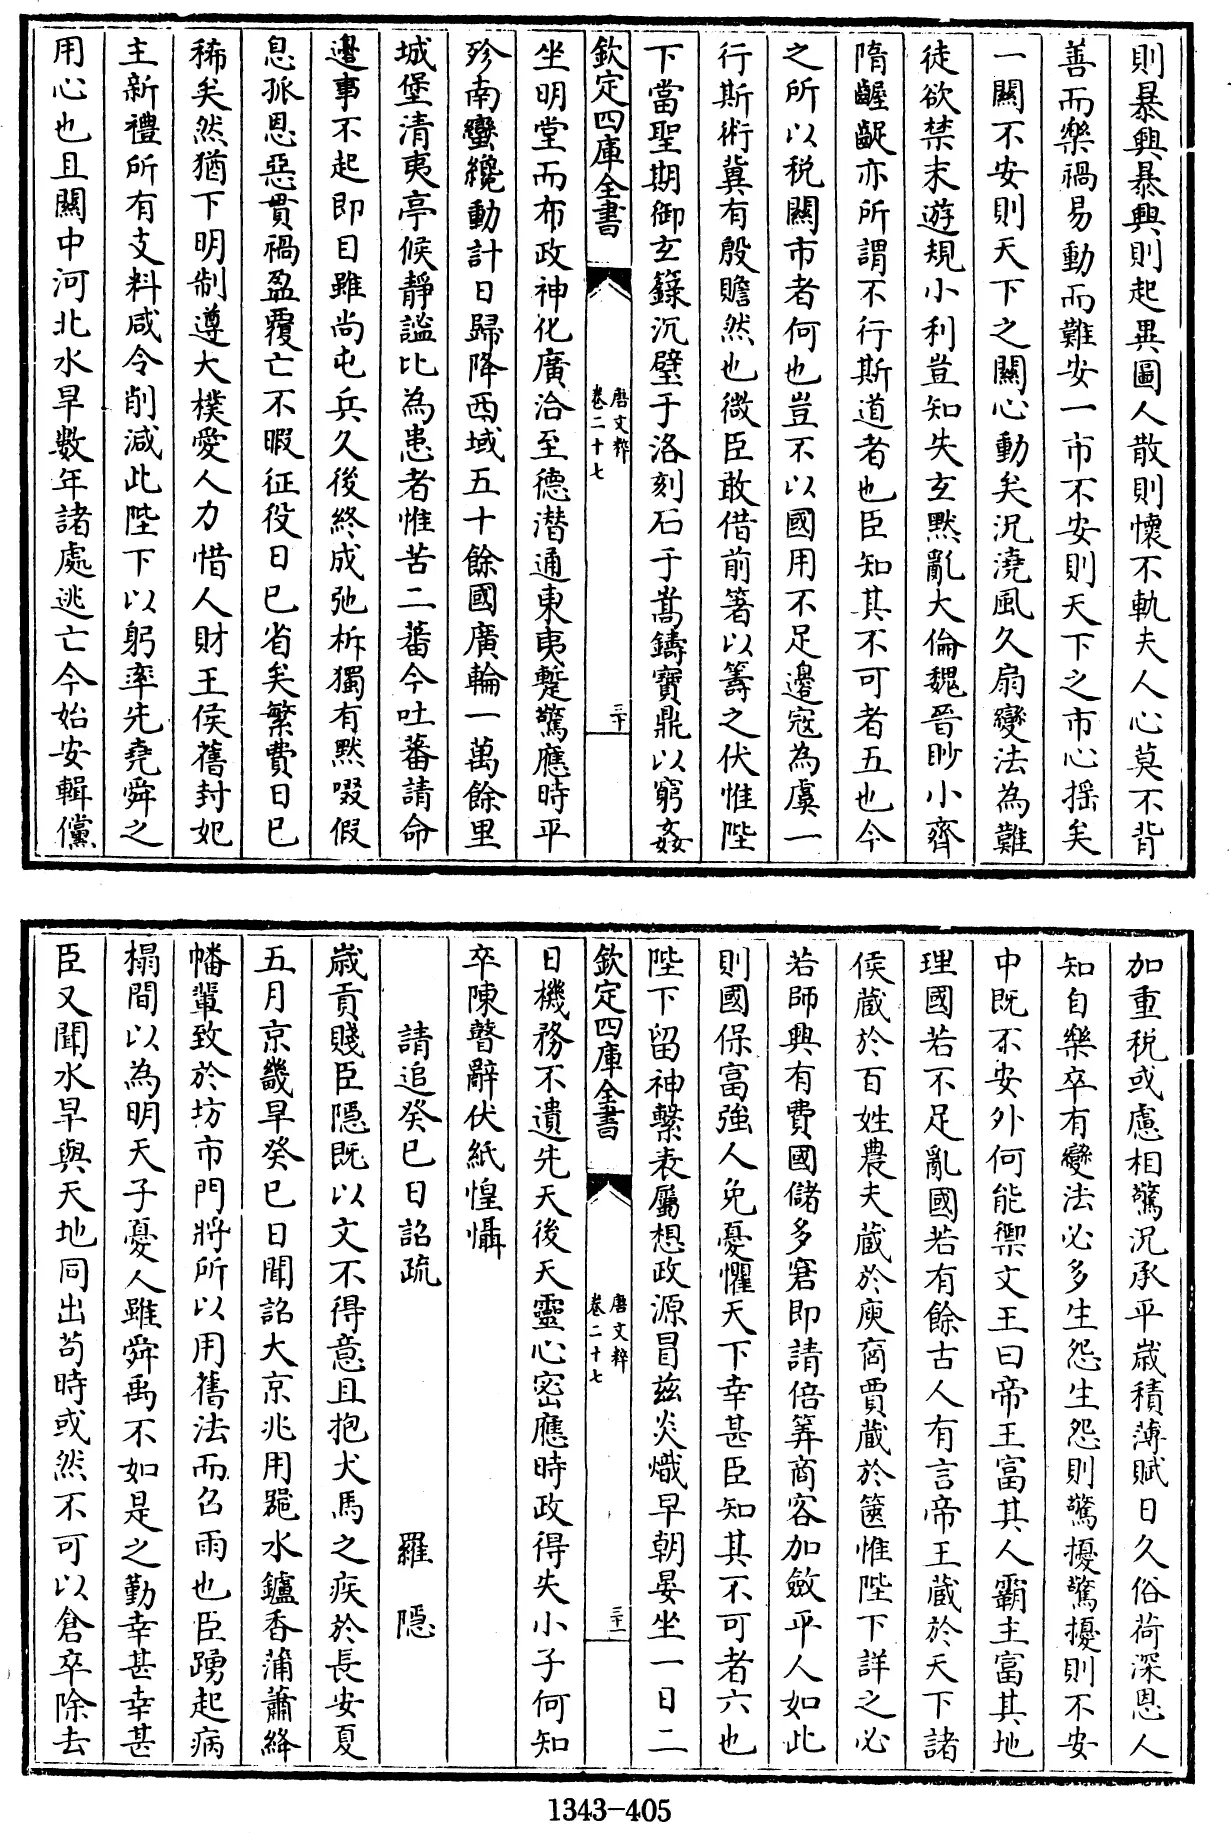 則暴興暴興則起異圖人散則懷不軌夫人心莫不背
善而樂禍易動而難安一市不安則天下之市心揺矣
一關不安則天下之關心動矣況澆風久扇變法為難
徒欲禁末遊規小利豈知失玄黙亂大倫魏晉眇小齊
隋齷齪亦所謂不行斯道者也臣知其不可者五也今
之所以税關市者何也豈不以國用不足邊寇為虞一
行斯術冀有殷贍然也微臣敢借前箸以籌之伏惟陛
下當聖期御玄籙沉璧于洛刻石于嵩鑄寶鼎以窮姦
欽定四庫全書
唐文粹
卷二十七
三十
坐明堂而布政神化廣洽至德潜通東夷蹔驚應時平
殄南蠻纔動計日歸降西域五十餘國廣輪一萬餘里
城堡清夷亭候靜謐比為患者惟苦二蕃今吐蕃請命
邊事不起即目雖尚屯兵久後終成弛柝獨有黙啜假
息孤恩惡貫禍盈覆亡不暇征役日已省矣繁費日已
稀矣然猶下明制遵大樸愛人力惜人財王侯舊封妃
主新禮所有支料咸令削減此陛下以躬率先堯舜之
用心也且關中河北水旱數年諸處逃亡今始安輯儻
加重税或慮相驚況承平歲積薄賦日久俗荷深恩人
知自樂卒有變法必多生怨生怨則驚擾驚擾則不安
中既不安外何能禦文王曰帝王富其人霸主富其地
理國若不足亂國若有餘古人有言帝王蔵於天下諸
侯蔵於百姓農夫蔵於庾商賈蔵於篋惟陛下詳之必
若師興有費國儲多窘即請倍筭商客加斂平人如此
則國保富強人免憂懼天下幸甚臣知其不可者六也
陛下留神繫表屬想政源冒兹炎熾早朝晏坐一日二
欽定四庫全書
唐文粹
卷二十七
三十一
日機務不遺先天後天靈心密應時政得失小子何知
卒陳瞽辭伏紙惶懾
請追癸巳日詔疏 羅隱
歲貢賤臣隱既以文不得意且抱犬馬之疾於長安夏
五月京畿旱癸巳日聞詔大京兆用跪水鑪香蒲蕭絳
幡輩致於坊市門將所以用舊法而召雨也臣踴起病
榻間以為明天子憂人雖舜禹不如是之勤幸甚幸甚
臣又聞水旱與天地同出苟時或然不可以倉卒除去
1343-405